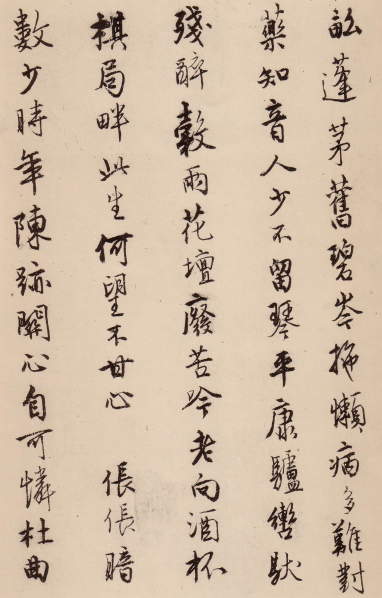 畝蓬茅舊碧岑拖懶病多難對
藥知音人少不留琴平康驢轡馱
殘醉穀雨花壇廢苦吟老向酒杯
棋局畔此生何望不甘心　倀倀暗
數少時年陳跡關心自可憐杜曲